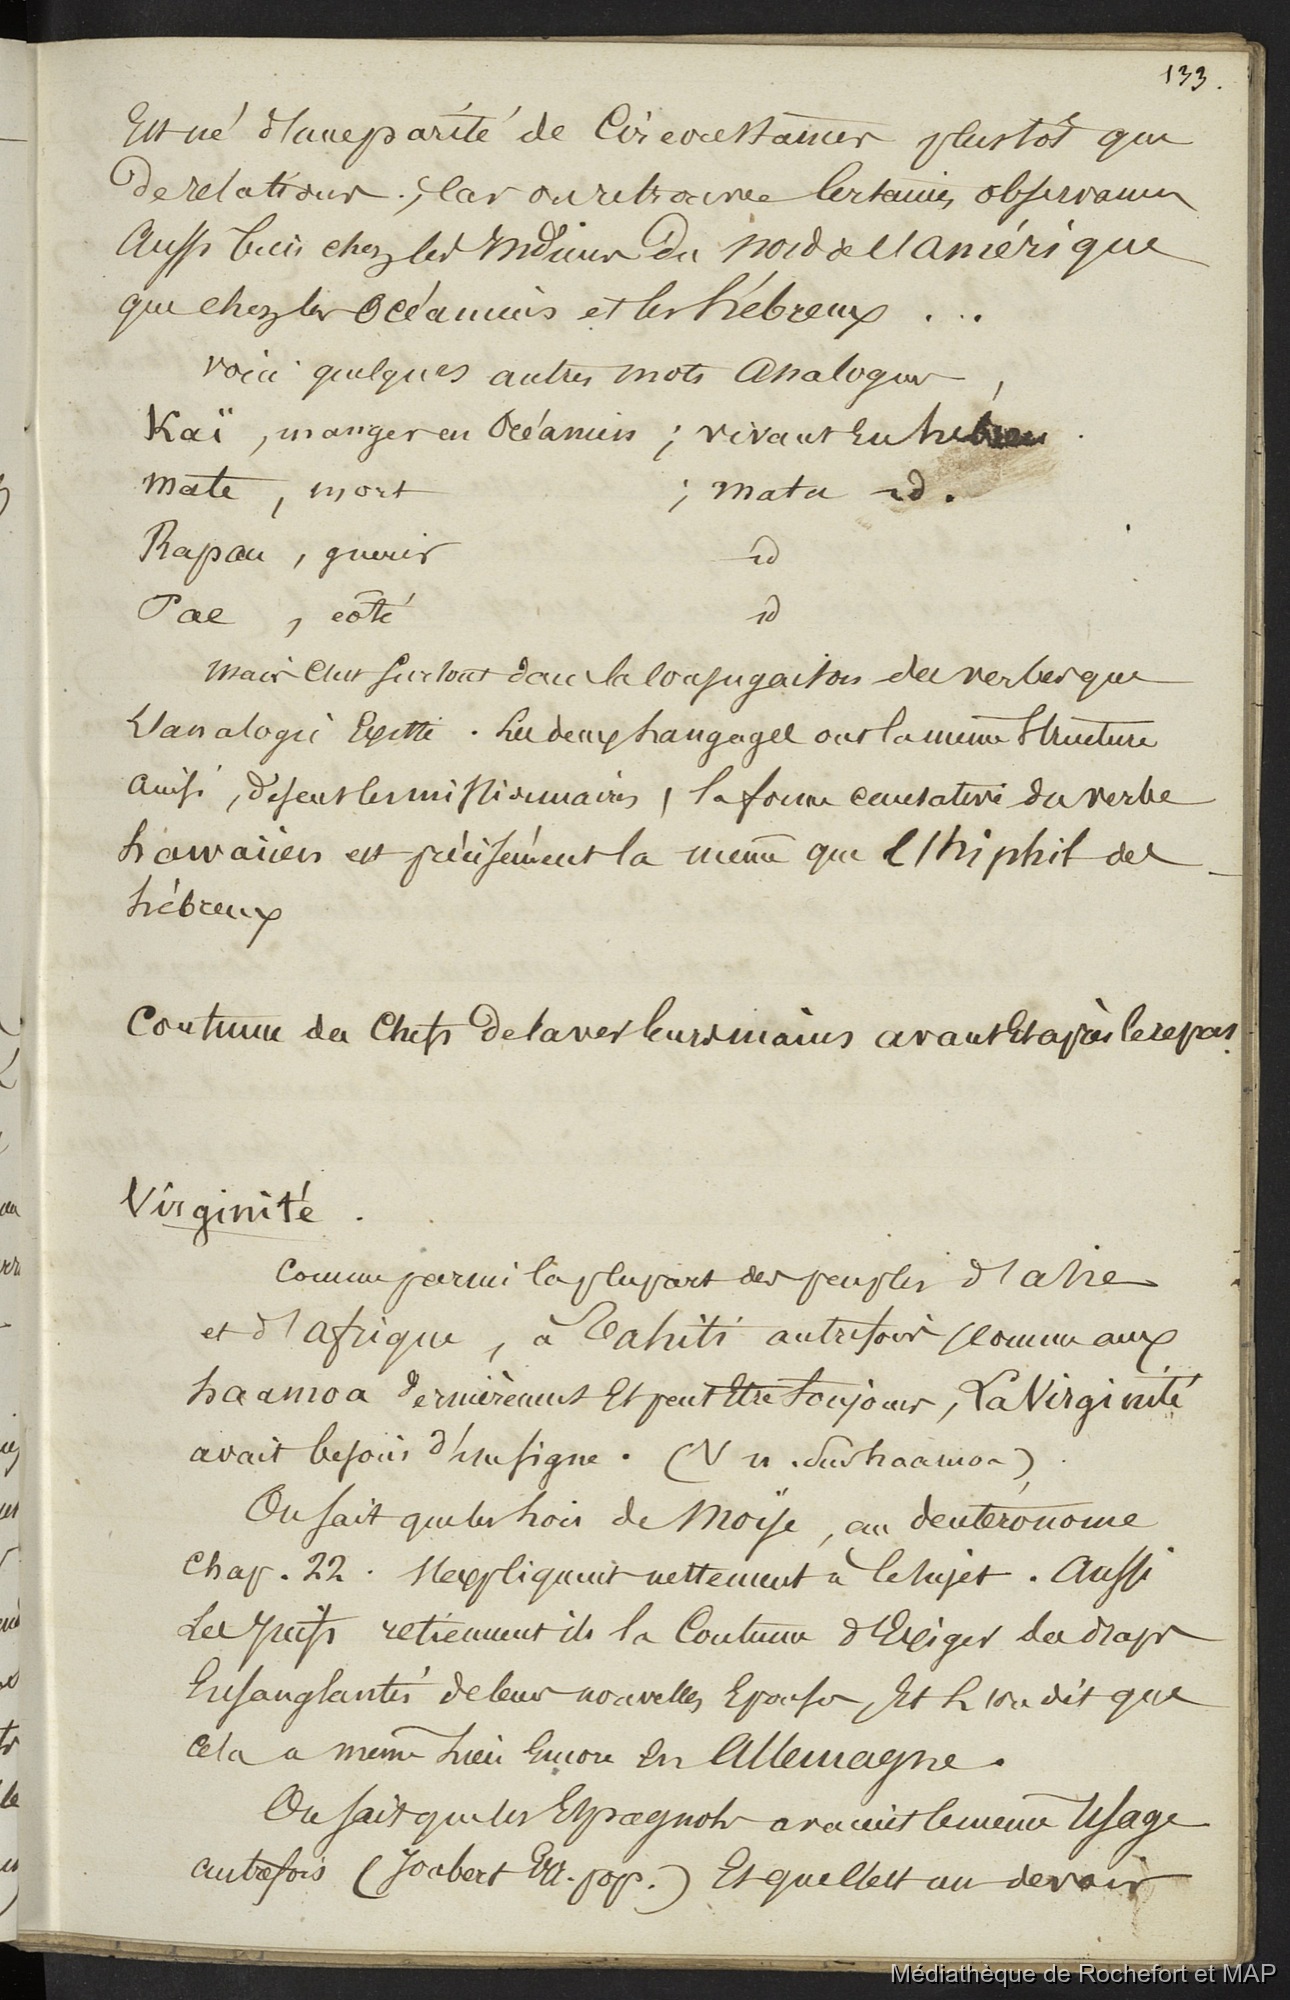 133.
Est né d'une parité de Circonstances plustôt que
De relations. ; Car on retrouve Certaines observances
Aussi bien chez les Indiens Du Nord de l'amérique
que chez les Océaniens et les hébreux ...
voici quelques autres mots analogues,
Kaï, manger en Océanien ; vivant En hébreu.
mate, mort ; mata id.
Rapau, guerir id
Pae, côté id
mais C'est surtout dans la Conjugaison des verbes que
L'analogie Existe. Les deux Langages ont la même Structure
ainsi, disent les missionnaires, la forme causative du verbe
hawaiien est précisément la même que l'hiphil des
hébreux
Coutume des Chefs De laver leurs mains avant Et après le repas.
Virginité.
Comme parmi la plupart des peuples d'asie
et d'afrique, à Tahiti autrefois, comme aux
haamoa Dernièrement Et peut Etre toujours, La Virginité
avait besoin d'un signe. (V n. sur haamoa).
On sait que les Lois de Moÿse, au deutéronome
Chap. 22. s'expliquent nettement à Ce sujet. Aussi
Les Juifs retiennent ils la Coutume d'Exiger des draps
Ensanglantés de leurs nouvelles Epouses, Et L'on dit que
Cela a même Lieu Encore En Allemagne.
On sait que les Espagnols avaient le même Usage
autrefois (Joubert Err. pop.) Et que c'est un devoir
Médiathèque de Rochefort et MAP